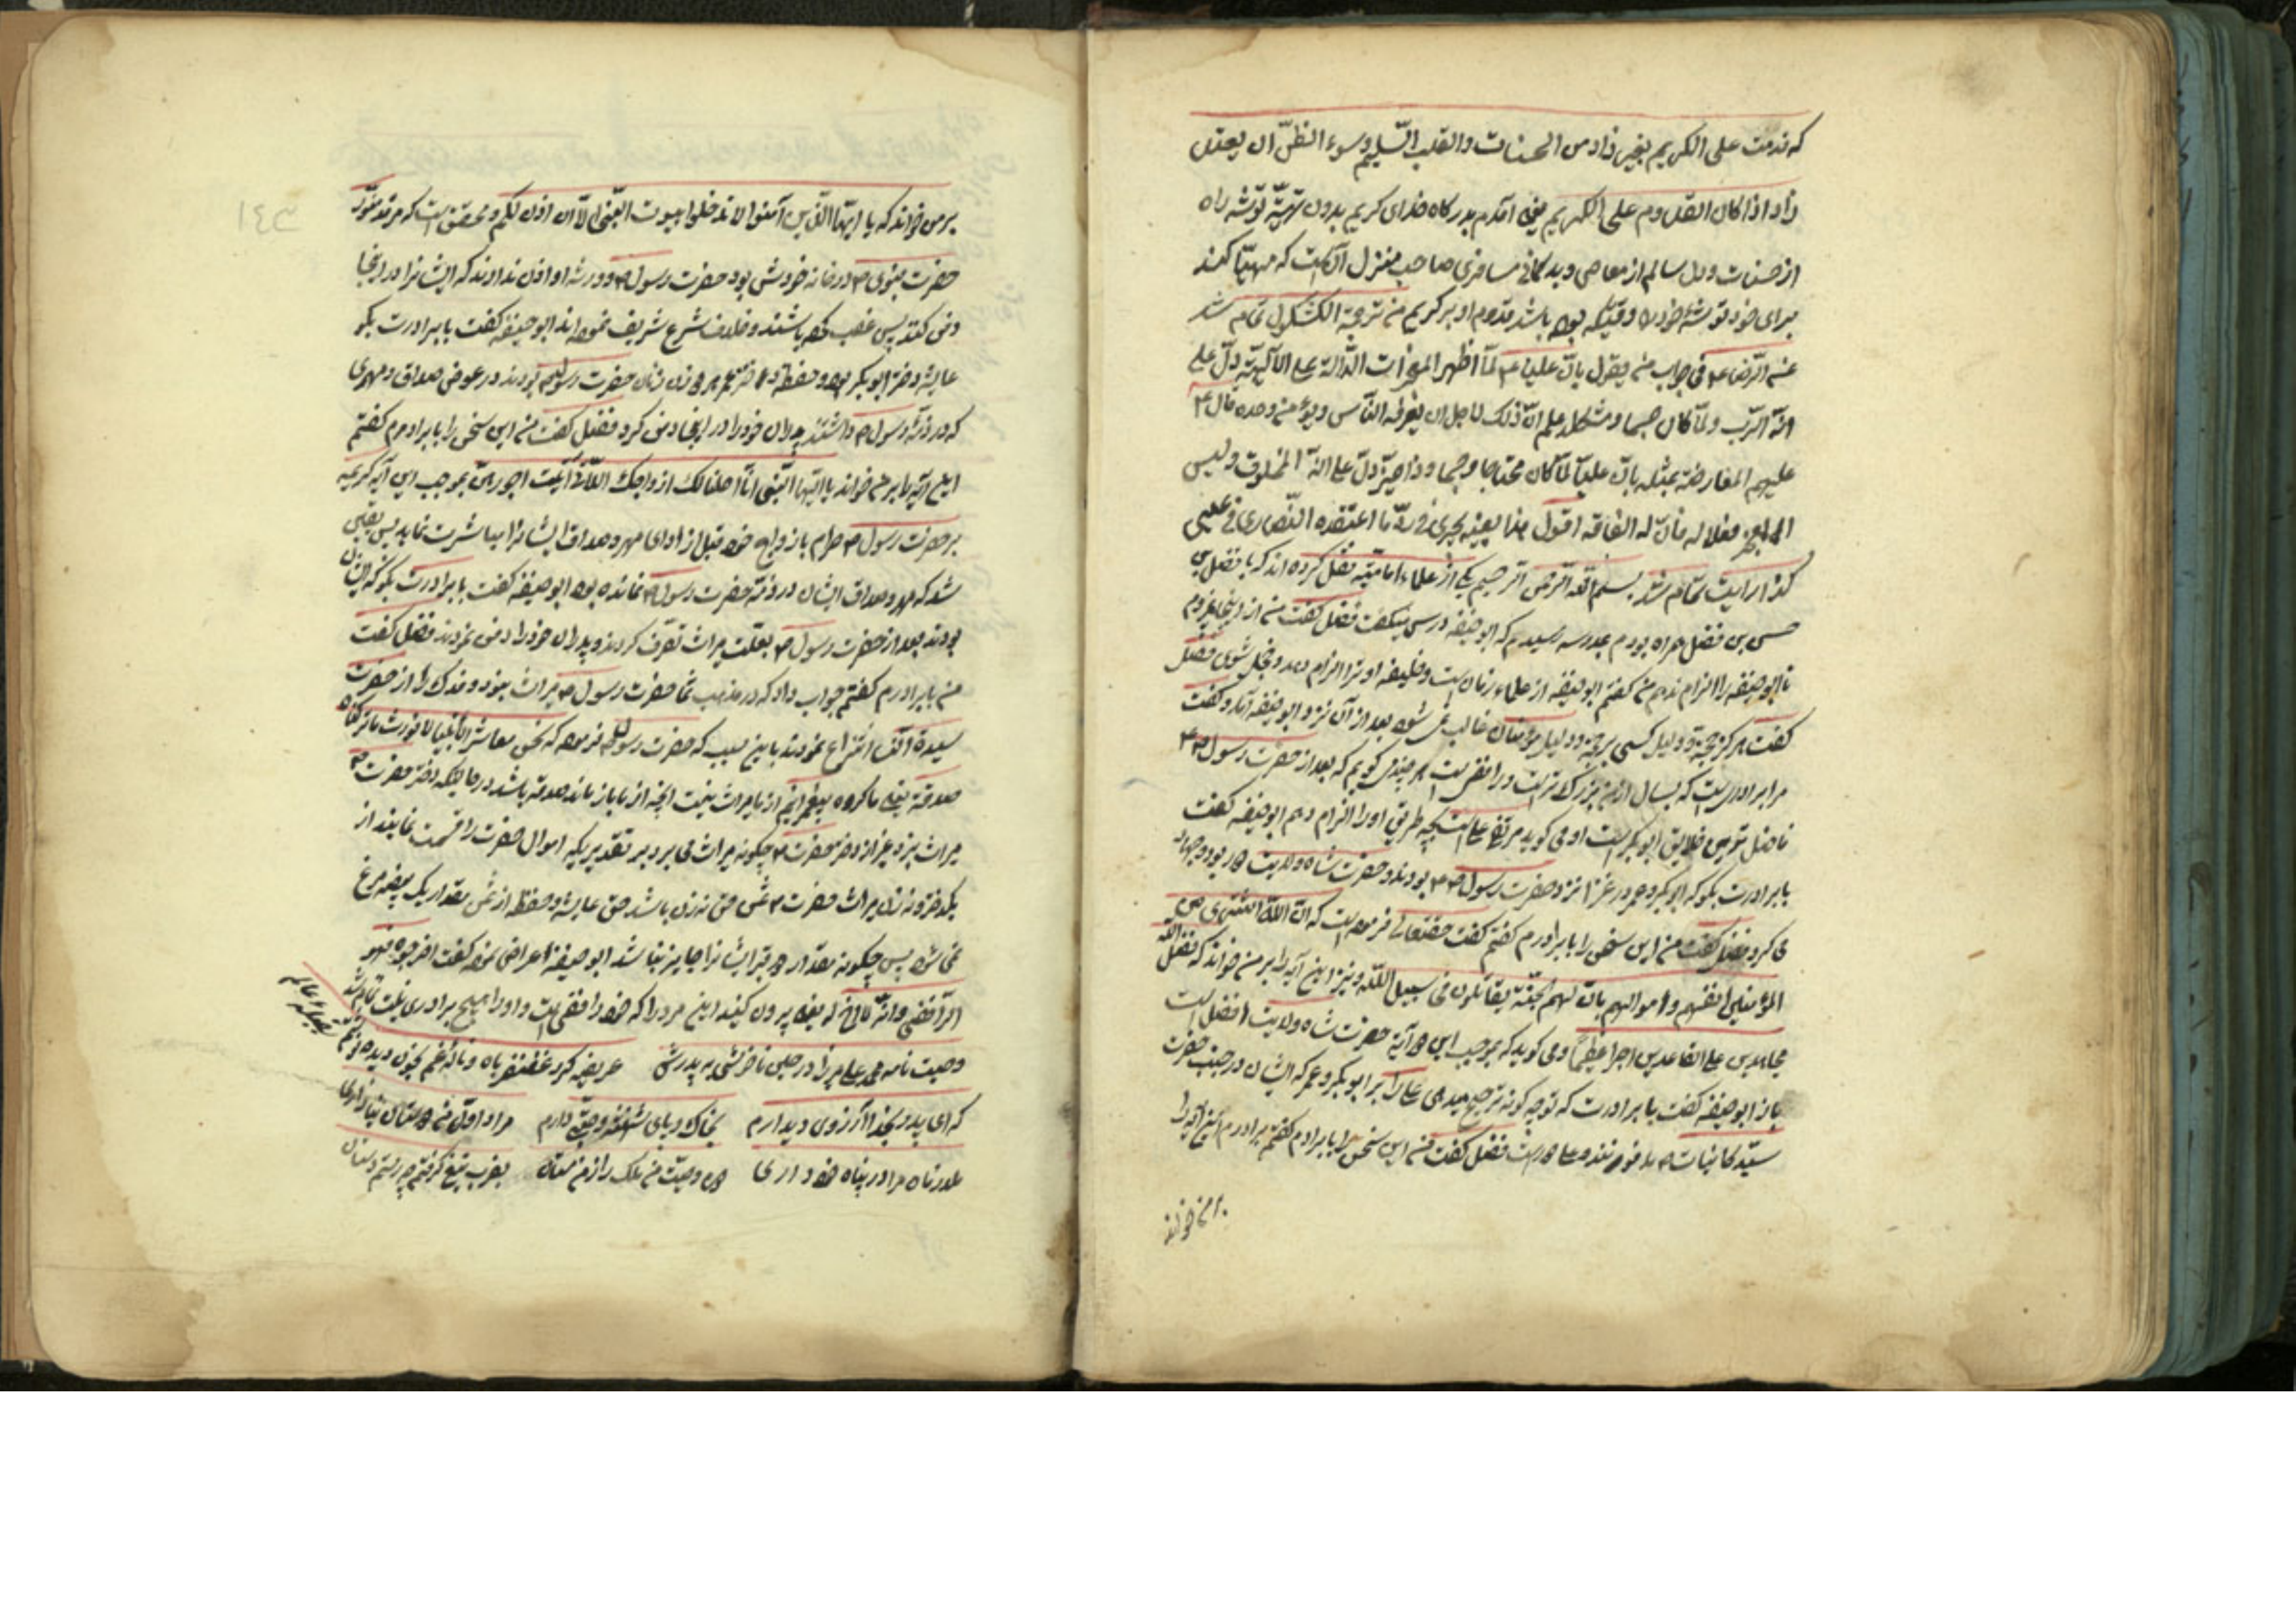 که قدمت علی الکریم بغیر زاد من الحسنات والقلب السّلیم وسوء الظنّ ان یعتدل
زاد اذا کان القدوم علی الکریم یعنی اقدم بدرکاه خدای کریم بدون تهیّه توشه راه
از حسنات و دل سالم از معاصی و بدکمانی مسافری صاحب منزل آنست که مهیّا کند
برای خود توشهٔ خود را وقتیکه بوده باشد قدوم او بر کریم من ترجمة الکشکول تمام شد
عن الرّضا ع فی جواب من یقول بان علیا ع لمّا اظهر المعجزات الدّالة علی الآلهیّة دلّ علی
انّه الرّب ولمّا کان جسما ومشکلا علم انّ ذلک لاجل ان یعرفه النّاس ویؤمن وحده قال ع
علیهم المعارضة بمثله بان علیّا لمّا کان محتاجا وجسما وذا حیّز دلّ علی انّه المخلوق ولیس
المعجز فعلا له فان له الفاقه اقول هذا بعینه یجری فی ردّ ما اعتقده النّصاری فی عیسی
کذا رایت تمام شد بسم الله الرّحمن الرّحیم یکی از علماء امامیّه نقل کرده اند که با فضل بن
حسن بن فضل همراه بودم بمدرسه رسیدیم که ابو حنیفه درس میکفت فضل کفت من از اینجا نمیروم
تا ابو حنیفه را الزام ندهم من کفتم ابو حنیفه از علماء زمان است و خلیفه او ترا الزام دهد و خجل شوی فضل
کفت هرکز حجّة و دلیل کسی بر حجّة و دلیل مؤمنان غالب نمی شود بعد از آن نزد ابو حنیفه آمد و کفت
مرا برادری است که بسال از من بزرکتر است و رافضی است هر چند می کویم که بعد از حضرت رسول ص
فاضل ترین خلایق ابوبکر است او می کوید مرتضی علی است بچه طریق او را الزام دهم ابو حنیفه کفت
با برادرت بکو که ابوبکر و عمر در غزا نزد حضرت رسول ص بودند و حضرت شاه ولایت دور بود و جهاد
می کرد فضل کفت من این سخن را با برادرم کفتم کفت حقتعالی فرموده است که انّ الله اشتری من
المؤمنین انفسهم واموالهم بان لهم الجنّة یقاتلون فی سبیل اللّه و نیز این آیه را بر من خواند که فضل الله
مجاهدین علی القاعدین اجرا عظیما و می کوید که بموجب این دو آیة حضرت شاه ولایت افضل است
باز ابو حنیفه کفت با برادرت که تو چه کونه ترجیح میدهی علی را بر ابوبکر و عمر که ایشان در جنب حضرت
سیّد کاینات ص مدفونند و علی دور است فضل کفت من این سخن را با برادرم کفتم برادرم این آیه را
بر من خواند
بر من خواند که یا ایّها الذّین آمنوا لا تدخلوا بیوت النّبی الّا ان اذن لکم و محقق است که مرقد منوّر
حضرت نبوی ص در خانه خودش بود حضرت رسول ص و ورثه او اذن ندادند که ایشانرا در اینجا
دفن کنند پس غصب کرده باشند و خلاف شرع شریف نموده اند ابو حنیفه کفت با برادرت بکو
عایشه دختر ابوبکر بود و حفظه دختر عمر هر دو زنان حضرت رسول ص بودند در عوض صداق و مهری
که در ذمّه رسول ص داشتند پدران خود را در اینجا دفن کرد فضل کفت من این سخن را با برادرم کفتم
این آیه را بر من خواند یا ایّها النّبی انّا احللنا لک ازواجک اللّاتی آتیت اجورهنّ بموجب این آیه کریمه
بر حضرت رسول ص حرام باز ازواج خود قبل از ادای مهر و صداق ایشانرا مباشرت نماید پس یقین
شد که مهر و صداق ایشان در ذمّه حضرت رسول ص نمانده بود ابو حنیفه کفت با برادرت بکو که ایشان
بودند بعد از حضرت رسول ص بعلّت میراث تصرّف کردند و پدران خود را دفن نمودند فضل کفت
من با برادرم کفتم جواب داد که در مذهب شما حضرت رسول ص میراث نبود و فدک را از حضرت
سیدة النّسا انتزاع نمودند باین سبب که حضرت رسول ص فرموده که نحن معاشر الانبیا لا نورث ما ترکناه
صدقة یعنی ما کروه پیغمبرانیم از ما میراث نیست آنچه از ما باز ماند صدقه باشد در حالیکه دختر حضرت ص
میراث نبرد غیر از دختر حضرت ص چکونه میراث می برد بر تقدیریکه اموال حضرت را قسمت نمایند از
یکدختر و نه زن میراث حضرت ص ثمن حق نه زن باشد حق عایشه و حفظه از ثمن بقدار یک بیضه مرغ
نمی شود پس چکونه بقدار دو قبر ایشانرا جایز نباشد ابو حنیفه اعراض نموده کفت اخرجوه فهو
الرّافضی وانّه لا اخ له یعنی بیرون کنید این مرد را که خود رافضی است و او را هیچ برادری نیست تمام شد
وصیت نامه محمد علی میرزا در حین ناخوشی به پدرش عریضه کرد غضنفر باه و ناله غم بخون دیده
که ای پدر بخدا آرزوی دیدارم بخاک و پای شهنشه وصیّتی دارم مراد اول من دوستان
مادر شاه مرا در پناه خود داری دوم وصیّت من ملک را ز من مستان بضرب تیغ کرفتم